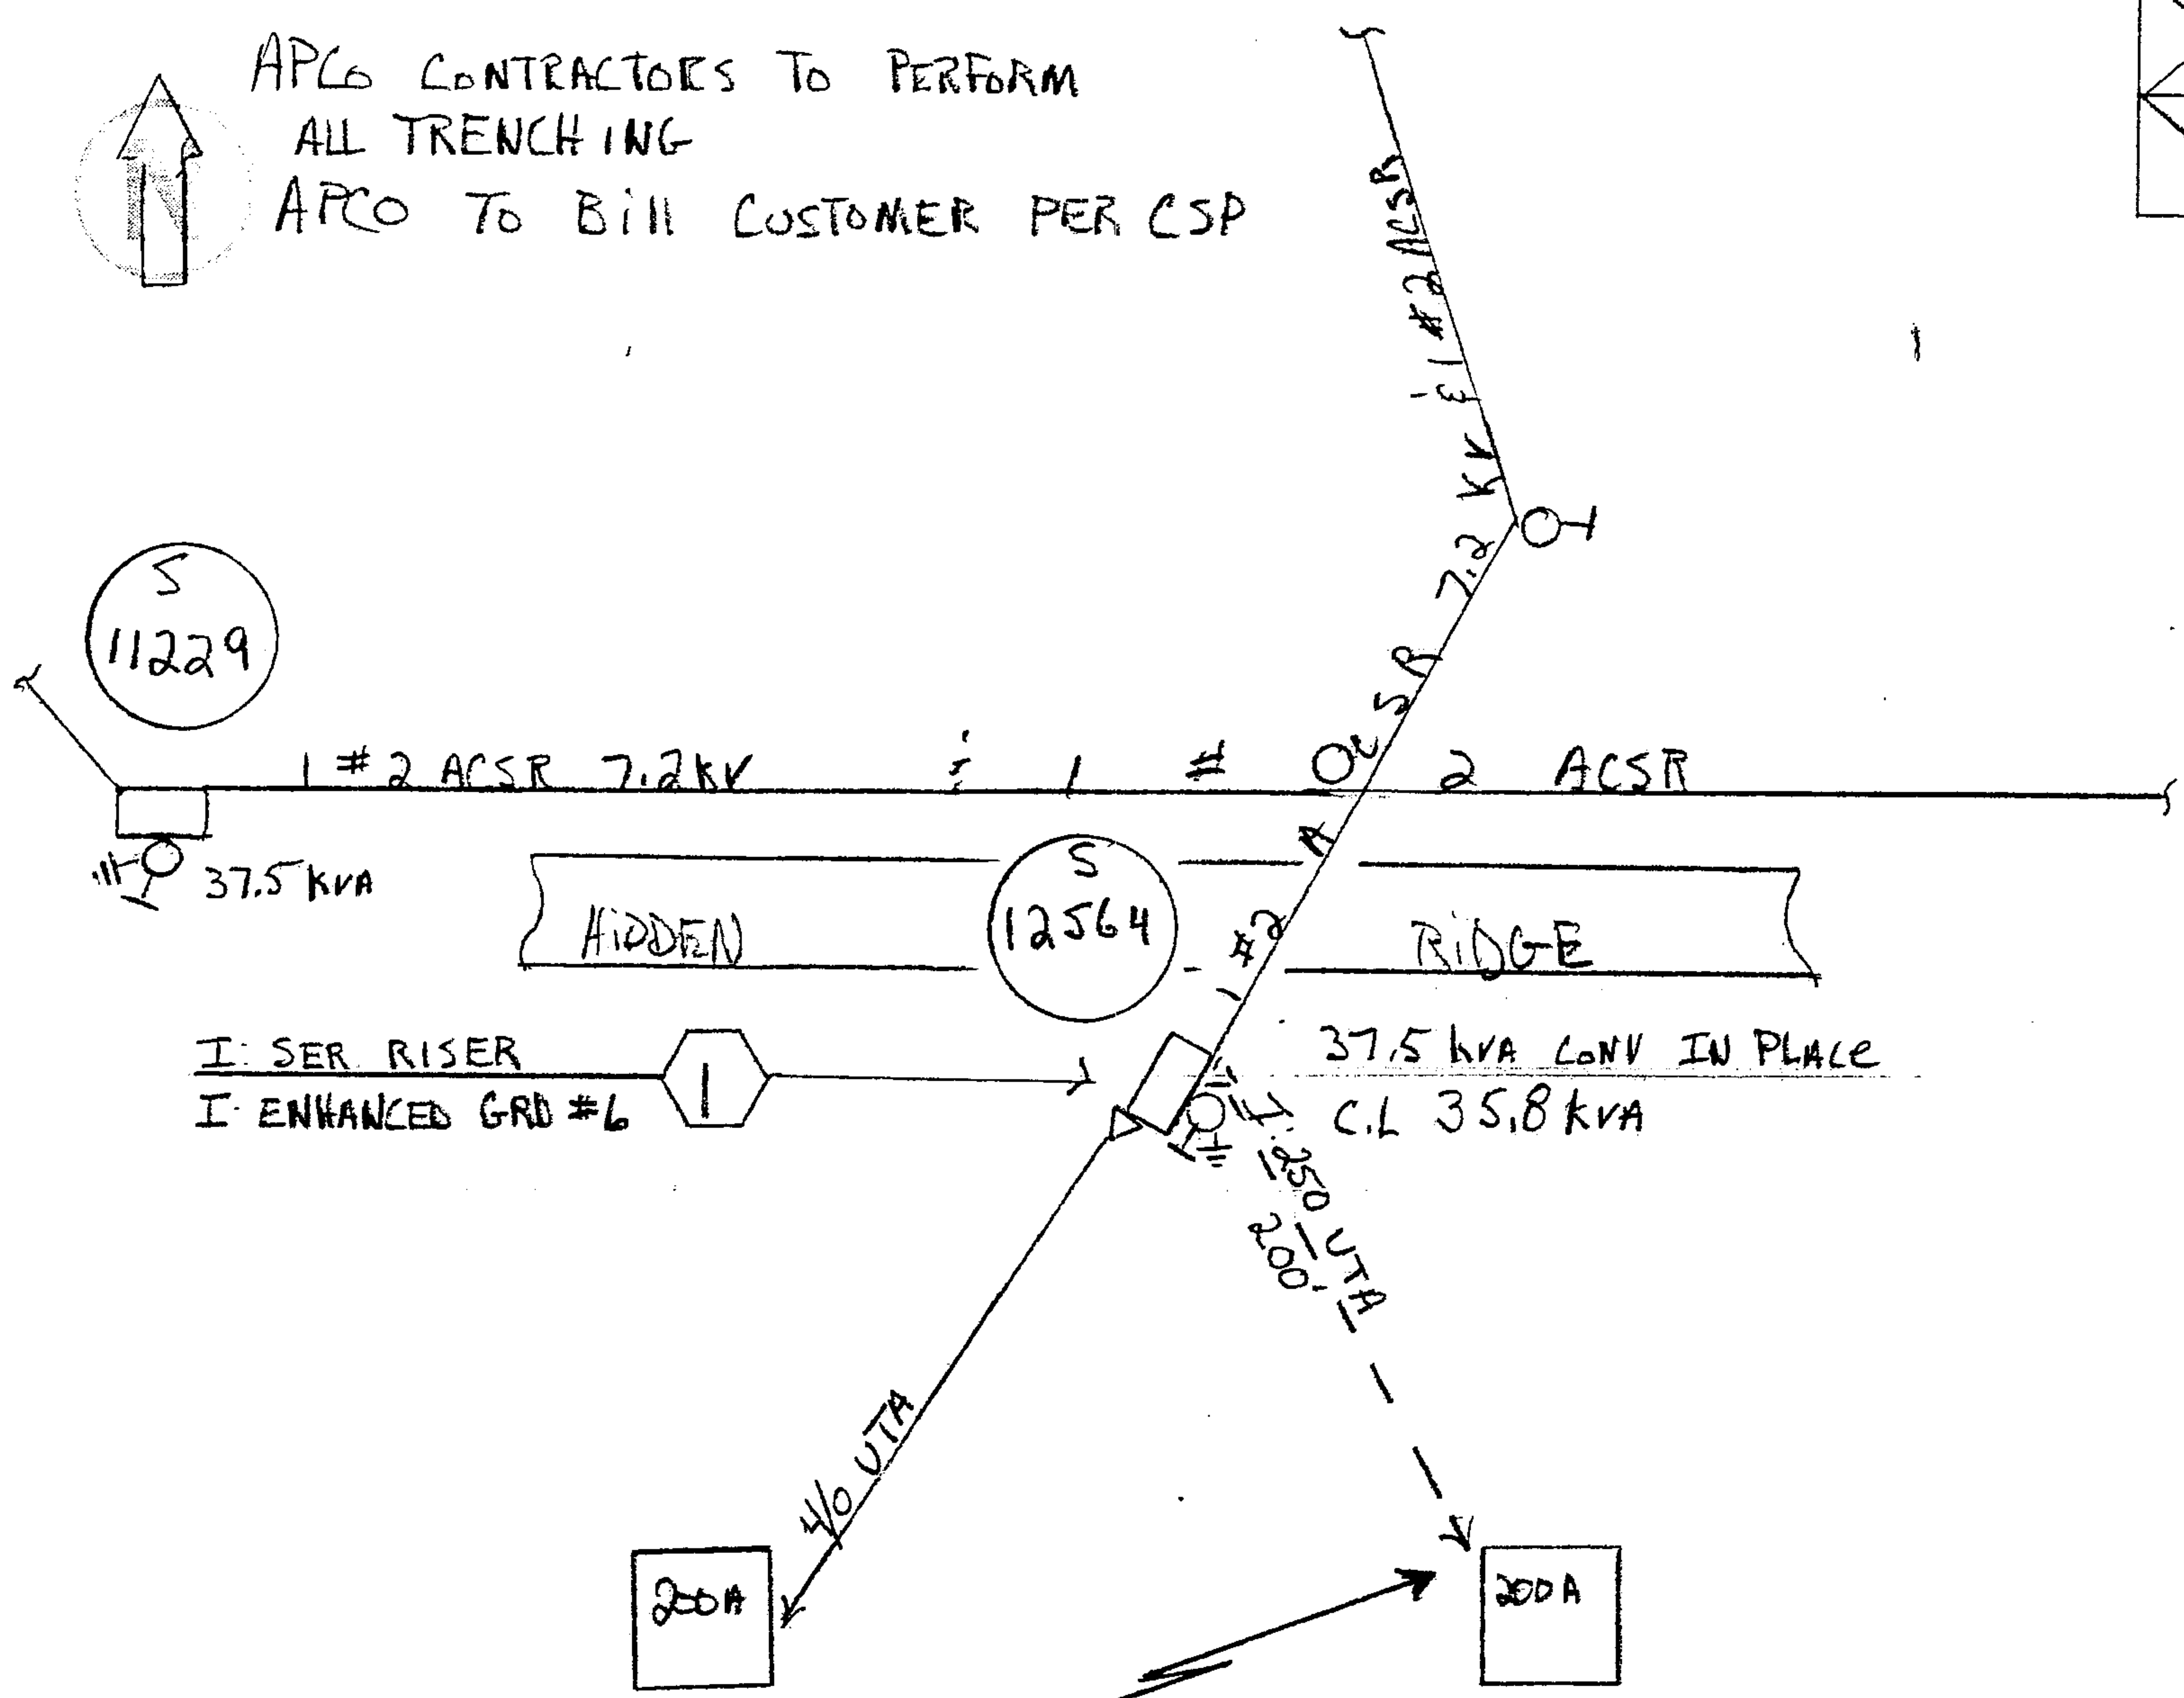 APCO CONTRACTORS TO PERFORM
ALL TRENCHING
APCO TO Bill CUSTOMER PER CSP
N
1 #2 ACSR 7.2 KV & 1 #2 ACSR
S
11229
1 #2 ACSR 7.2KV & 1 # 2 ACSR
37.5 KVA
S
12564
HiDDEN RiDGE
I: SER. RISER
I: ENHANCED GRD #6
1
37.5 kVA CONV IN PLACE
C.L 35.8 KVA
250 UTA
200'
4/0 UTA
200A
200A